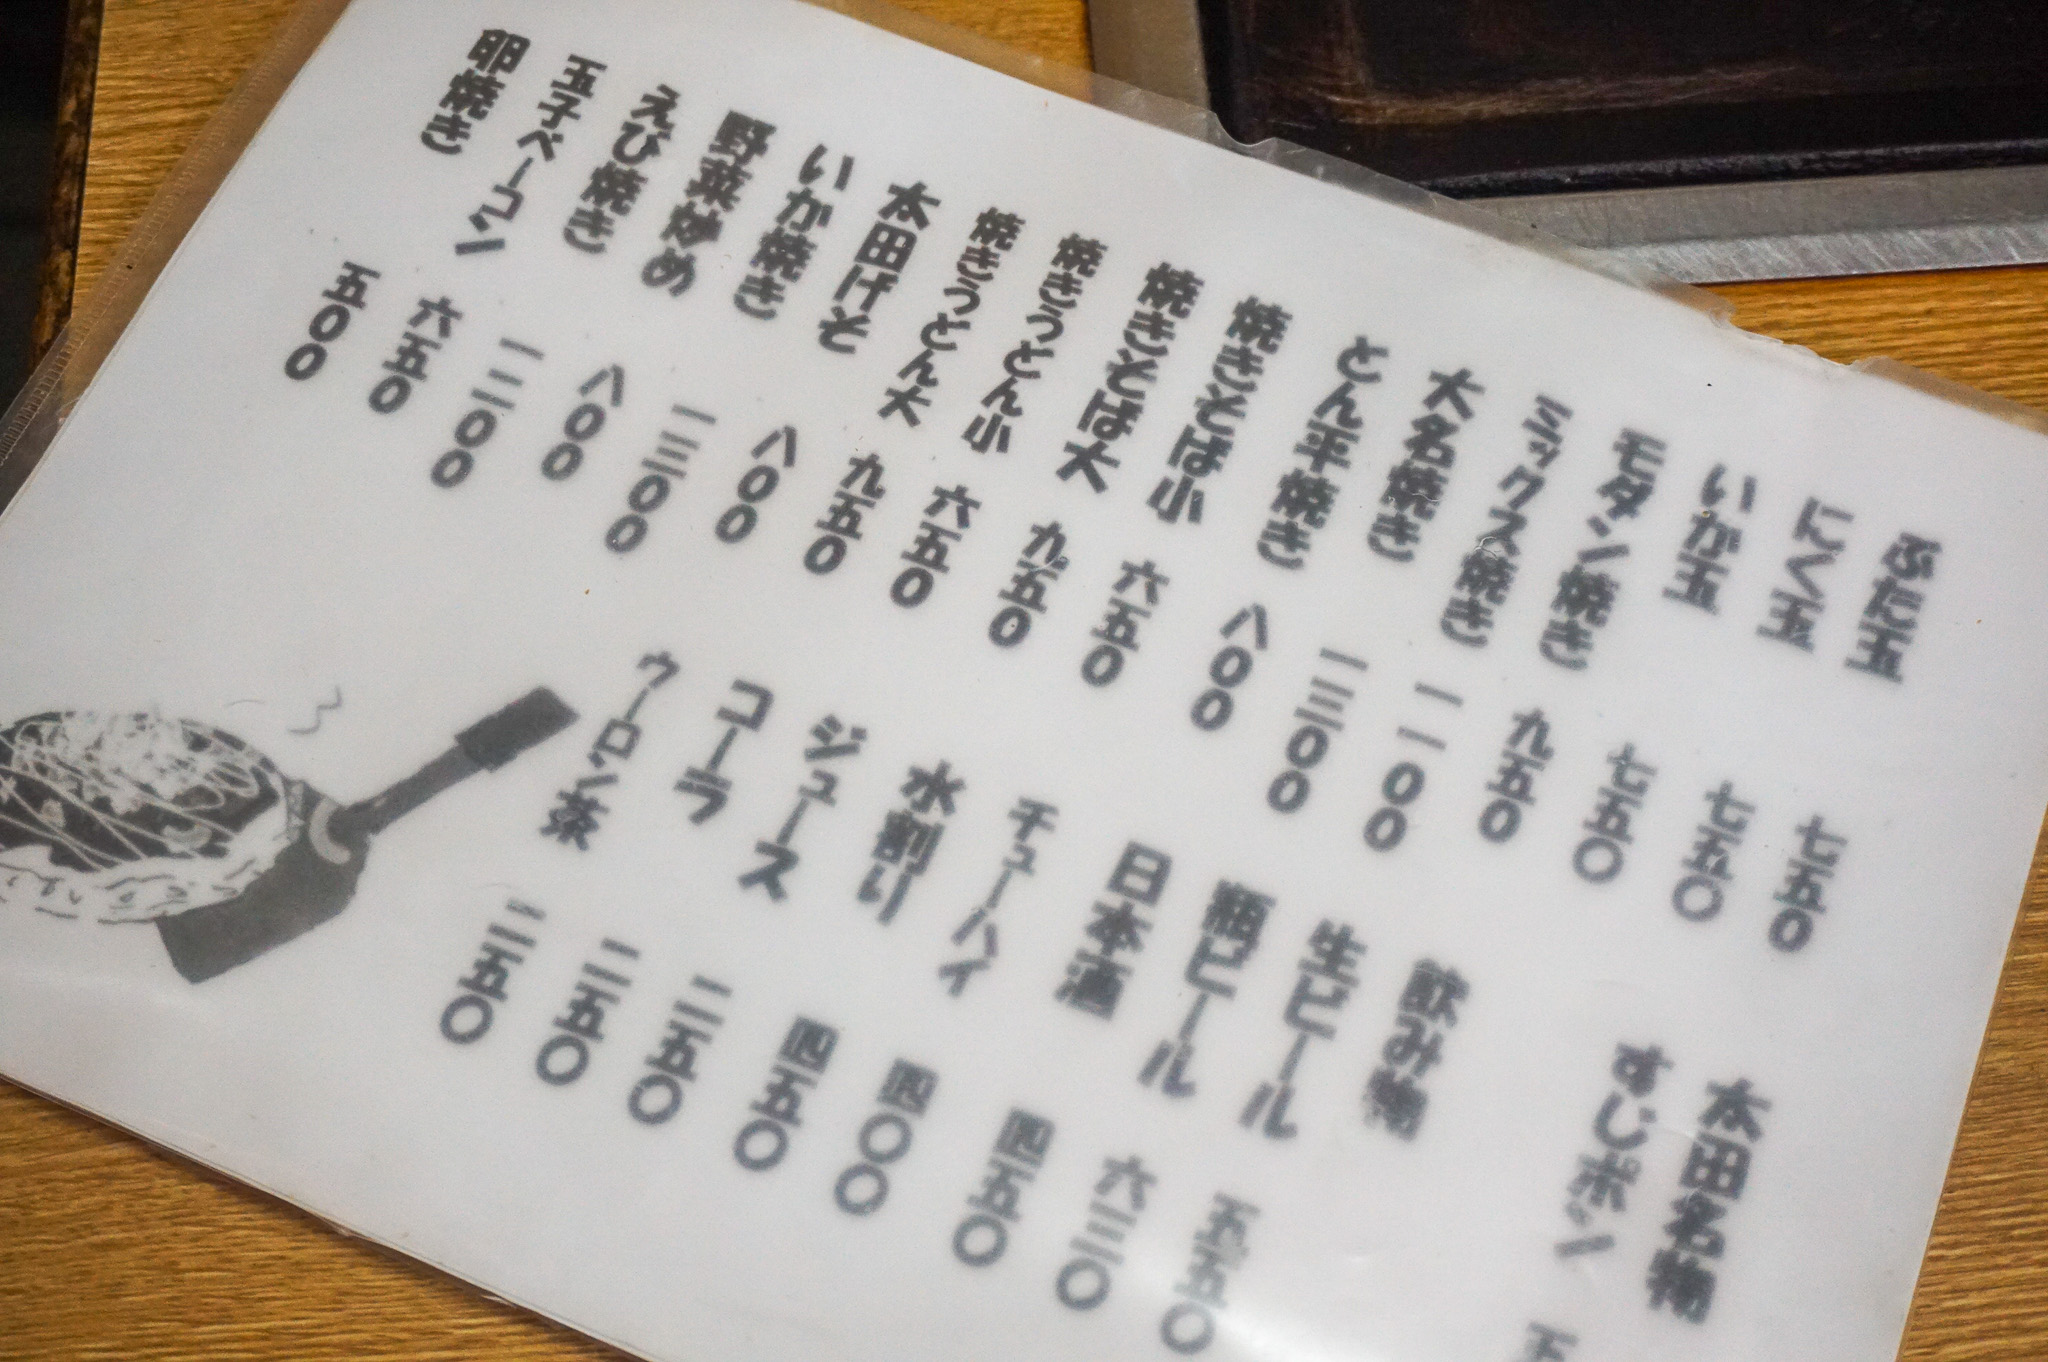 ぶた玉 七五〇
にく玉 七五〇
いか玉 七五〇
モダン焼き 九五〇
ミックス焼き 一一〇〇
大名焼き 一三〇〇
とん平焼き 八〇〇
焼きそば小 六五〇
焼きそば大 九五〇
焼きうどん小 六五〇
焼きうどん大 九五〇
太田げそ 八〇〇
いか焼き 一三〇〇
野菜炒め 八〇〇
えび焼き 一二〇〇
玉子ベーコン 六五〇
卵焼き 五〇〇
太田名物
すじポン
飲み物
生ビール 五五〇
瓶ビール 六三〇
日本酒 四五〇
チューハイ 四〇〇
水割り 四五〇
ジュース 二五〇
コーラ 二五〇
ウーロン茶 二五〇